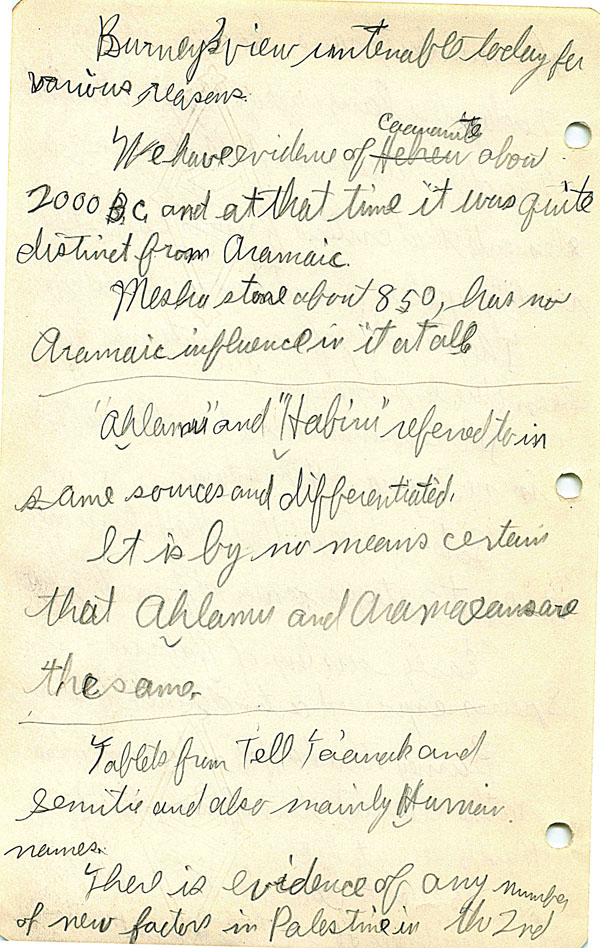 Burney's view untenable today for
various reasons.
Canaanite
We have evidence of Hebrew about
2000 B.C. and at that time it was quite
distinct from Aramaic.
Mesha stone about 850, has no
Aramaic influence in it at all
"Aḫlamu" and "Ḫabiru" referred to in
same sources and differentiated.
It is by no means certain
that Aḫlamu and Aramaeans are
the same.
Tablets from Tell Ta'anach and
Semitic and also mainly Hurrian
names.
There is evidence of any number
of new factors in Palestine in the 2nd